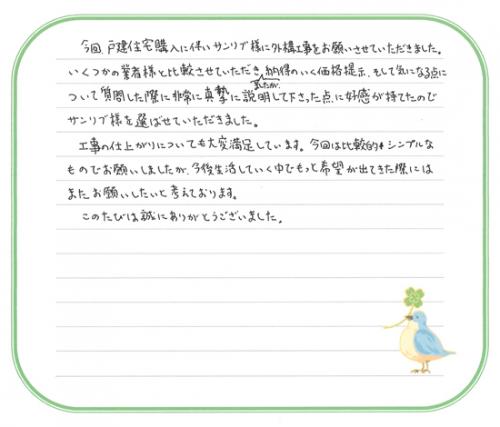 今回、戸建住宅購入に伴いサンリブ様に外構工事をお願いさせていただきました。
いくつかの業者様と比較させていただきましたが、納得のいく価格提示、そして気になる点に
ついて質問した際に非常に真摯に説明して下さった点に好感が持てたので
サンリブ様を選ばせていただきました。
工事の仕上がりについても大変満足しています。今回は比較的シンプルな
ものでお願いしましたが、今後生活していく中でもっと希望が出てきた際には
またお願いしたいと考えております。
このたびは誠にありがとうございました。